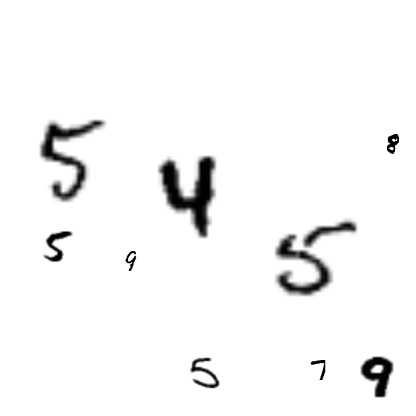 5 4 8
5 9 5
5 7 9